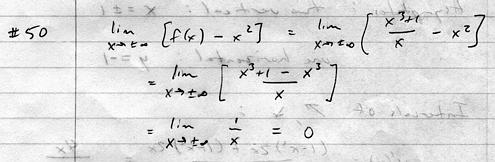 #50 lim x→±∞ [f(x) - x²] = lim x→±∞ [ (x³+1)/x - x² ]
= lim x→±∞ [ (x³+1 - x³)/x ]
= lim x→±∞ 1/x = 0